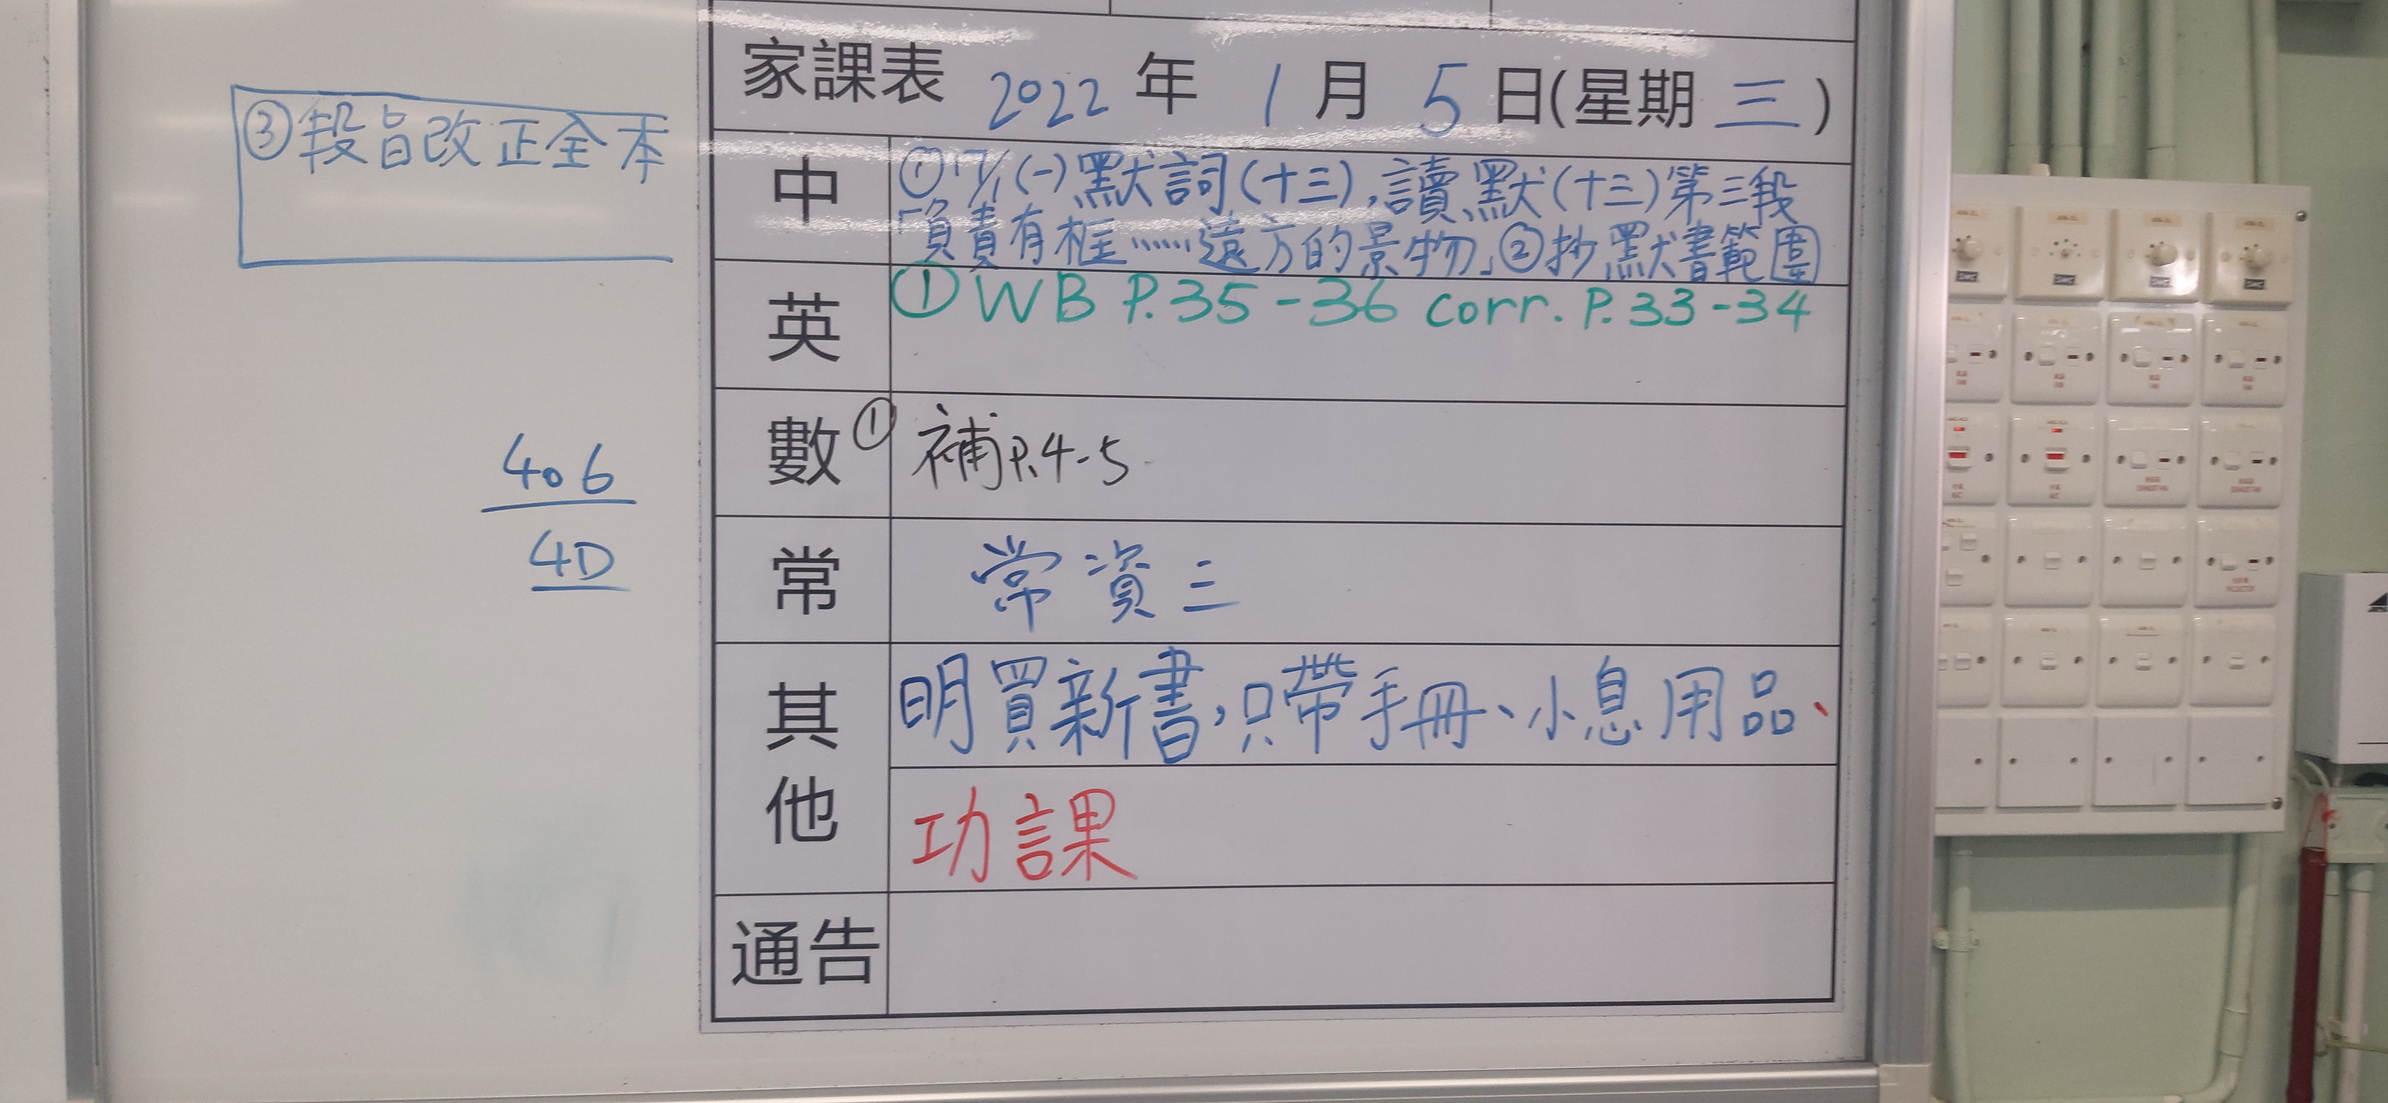 家課表 2022 年 1 月 5 日(星期 三)
③段旨改正全本
中 ①17/1(一)默詞(十三),讀默(十三)第三段
「負責有框……遠方的景物」②抄默書範圍
英 ①WB P.35-36 corr. P.33-34
數 ①補P.4-5
406
4D
常 常資三
其他 明買新書,只帶手冊、小息用品、
功課
通告